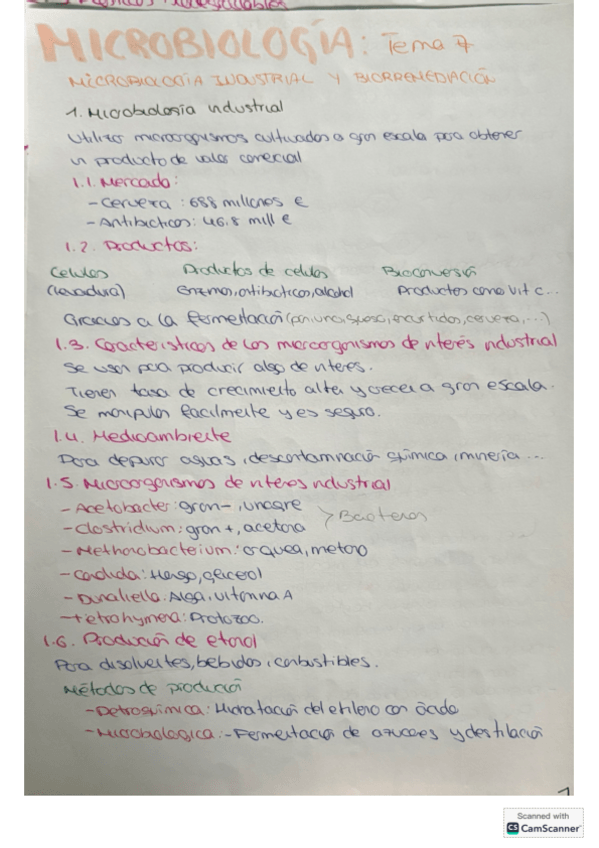 MICROBIOLOGÍA: Tema 7
MICROBIOLOGÍA INDUSTRIAL Y BIORREMEDIACIÓN
1. Microbiología industrial
Utilizar microorganismos cultivados a gran escala para obtener
un producto de valor comercial
1.1. Mercado:
- Cerveza: 688 millones €
- Antibióticos: 46.8 mill €
1.2. Productos:
Células Productos de células Bioconversión
(levadura) Enzimas, antibióticos, alcohol Productos como vit C...
Gracias a la fermentación (pan, vino, queso, encurtidos, cerveza,...)
1.3. Características de los microorganismos de interés industrial
Se usan para producir algo de interés.
Tienen tasa de crecimiento alta y crecer a gran escala.
Se manipulan facilmente y es seguro.
1.4. Medioambiente
Para depurar aguas, descontaminación química, minería...
1.5. Microorganismos de interés industrial
- Acetobacter: gram -, vinagre
- Clostridium: gram +, acetona > Bacterias
- Methanobacterium: arquea, metano
- Candida: Hongo, glicerol
- Dunaliella: Alga, vitamina A
- Tetrahymena: Protozoo.
1.6. Producción de etanol
Para disolventes, bebidas, combustibles.
Métodos de producción
- Petroquímica: Hidratación del etileno con ácido
- Microbiológica: - Fermentación de azúcares y destilación
1
Scanned with
CS CamScanner